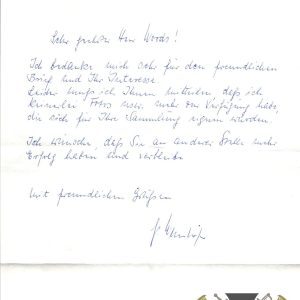 Sehr geehrter Herr Woods!
Ich bedanke mich sehr für den freundlichen
Brief und Ihr Interesse.
Leider muß ich Ihnen mitteilen, daß ich
keinerlei Fotos usw. mehr zur Verfügung habe,
die sich für Ihre Sammlung eignen würden.
Ich wünsche, daß Sie an anderer Stelle mehr
Erfolg haben und verbleibe
mit freundlichen Grüßen